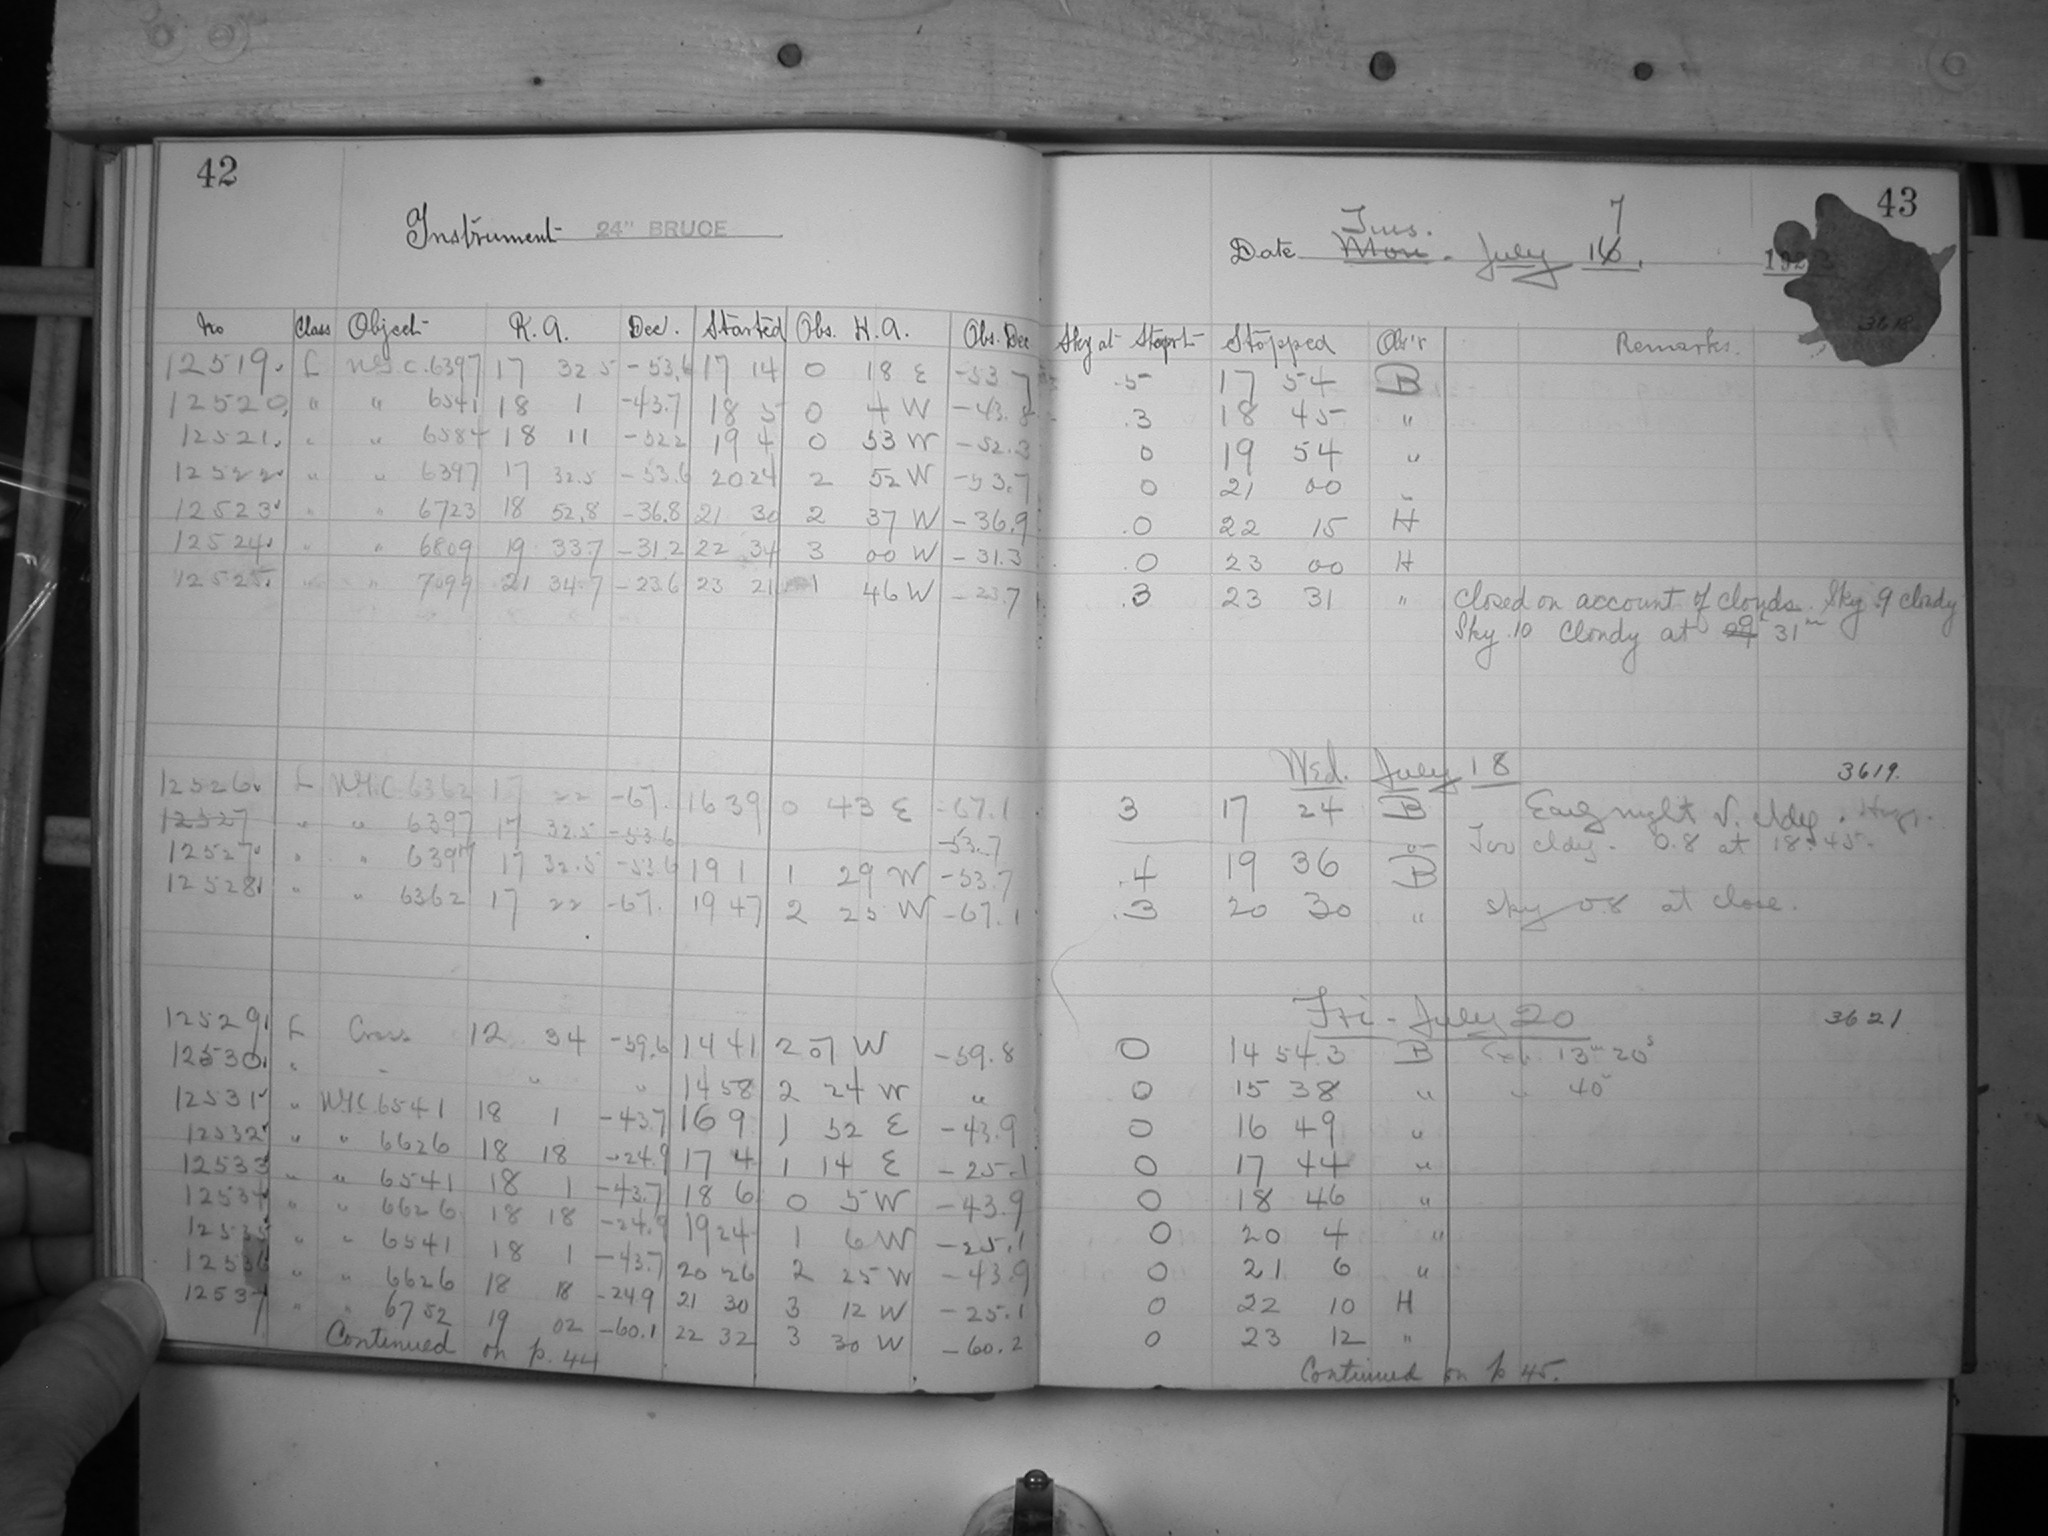 42
Instrument 24" BRUCE
No Class Object R.A. Dec. Started Obs. H.A. Obs. Dec
12519. L N.G.C. 6397 17 32.5 -53.6 17 14 0 18 E -53.7
12520. " " 6541 18 1 -43.7 18 5 0 4 W -43.8
12521. " " 6584 18 11 -52.2 19 4 0 53 W -52.3
12522. " " 6397 17 32.5 -53.6 20 24 2 52 W -53.7
12523. " " 6723 18 52.8 -36.8 21 30 2 37 W -36.9
12524. " " 6809 19 33.7 -31.2 22 34 3 00 W -31.3
12525. " " 7099 21 34.7 -23.6 23 21 1 46 W -23.7
12526. L N.G.C. 6362 17 22 -67. 16 39 0 43 E -67.1
12527 " " 6397 17 32.5 -53.6 -53.7
12527. " " 6397 17 32.5 -53.6 19 1 1 29 W -53.7
12528. " " 6362 17 22 -67. 19 47 2 25 W -67.1
12529. L Cross 12 34 -59.6 14 41 2 07 W -59.8
12530. " " " " 14 58 2 24 W "
12531. " N.G.C. 6541 18 1 -43.7 16 9 1 52 E -43.9
12532. " " 6626 18 18 -24.9 17 4 1 14 E -25.1
12533 " " 6541 18 1 -43.7 18 6 0 5 W -43.9
12534 " " 6626 18 18 -24.9 19 24 1 6 W -25.1
12535 " " 6541 18 1 -43.7 20 26 2 25 W -43.9
12536 " " 6626 18 18 -24.9 21 30 3 12 W -25.1
12537 " " 6752 19 02 -60.1 22 32 3 30 W -60.2
Continued on p. 44
43
Tues. 7
Date Mon. July 16. 192
3618
Sky at Start Stopped Obs'r Remarks.
.5 17 54 B
.3 18 45 "
0 19 54 "
0 21 00 "
.0 22 15 H
.0 23 00 H
.3 23 31 " Closed on account of clouds. Sky .9 cloudy
Sky .10 Cloudy at 29 31m
Wed. July 18 3619.
3 17 24 B Early night V. cldy.
" Too cldy. 0.8 at 18:45.
.4 19 36 B
.3 20 30 " Sky 0.8 at close.
Fri - July 20 3621
0 14 54.3 B Exp. 13m 20s
0 15 38 " " 40m
0 16 49 "
0 17 44 "
0 18 46 "
0 20 4 "
0 21 6 "
0 22 10 H
0 23 12 "
Continued on p 45.